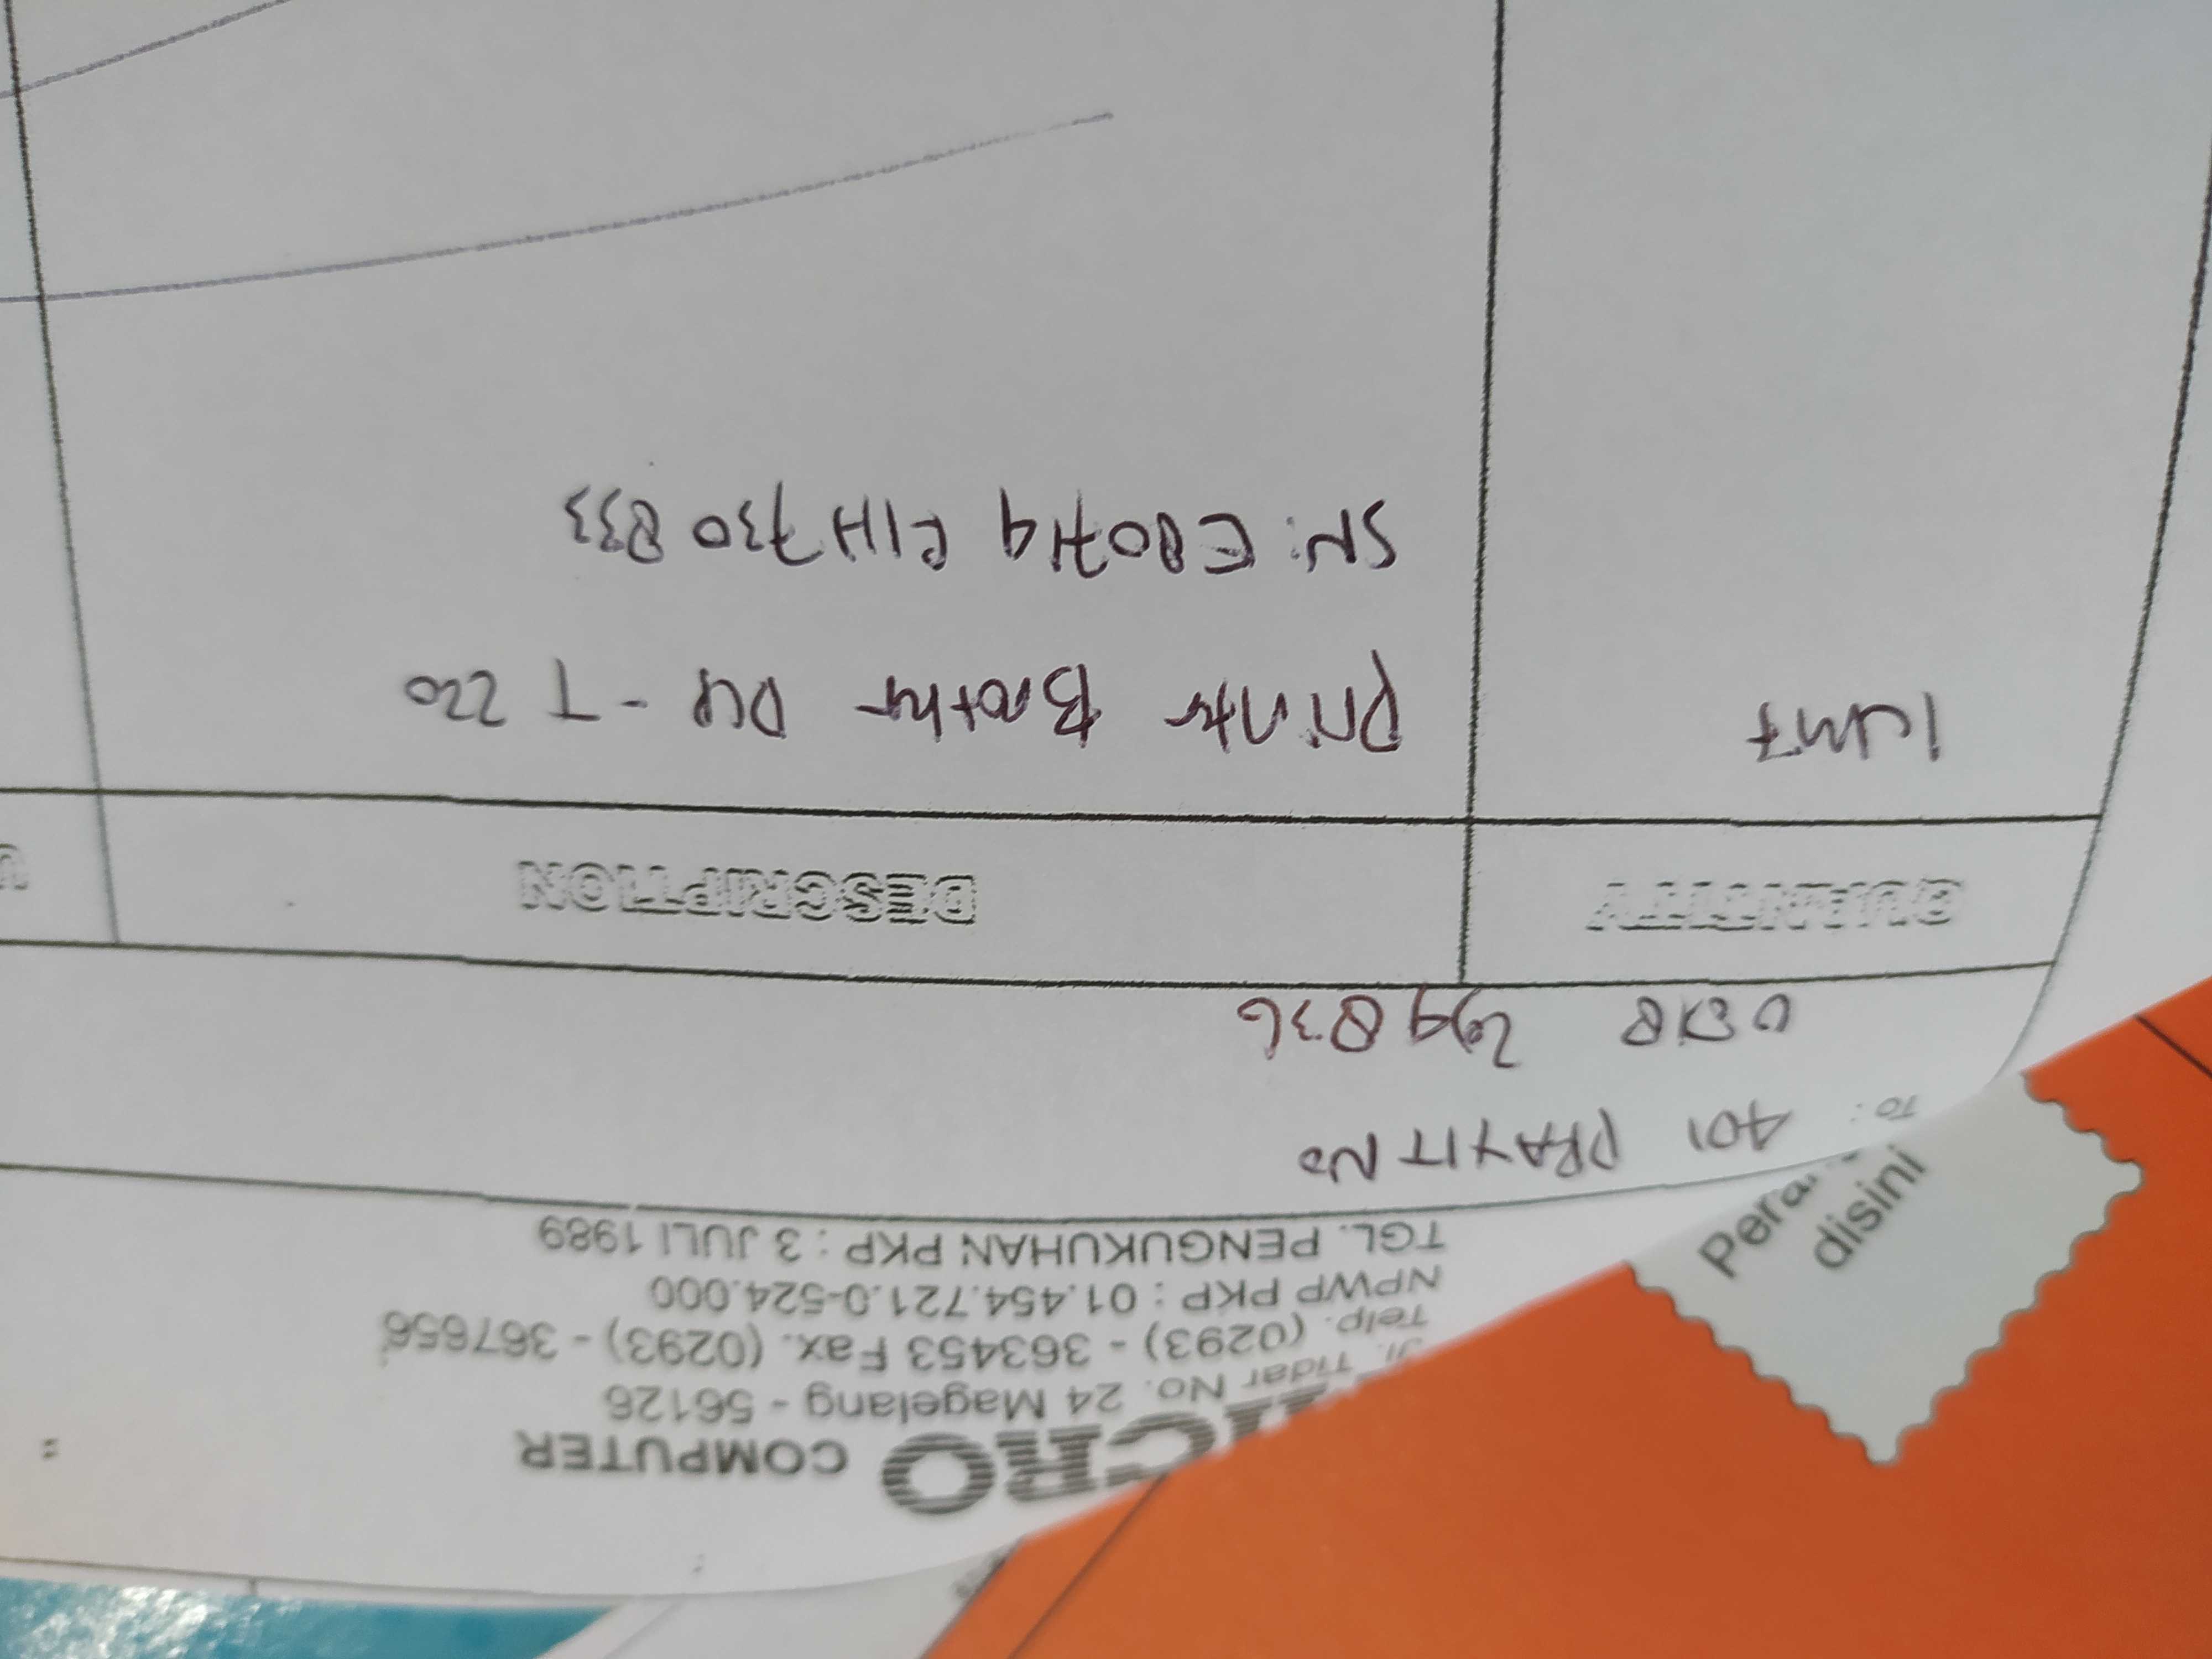 CRO COMPUTER
Jl. Tidar No. 24 Magelang - 56126
Telp. (0293) - 363453 Fax. (0293) - 367656
NPWP PKP : 01.454.721.0-524.000
TGL. PENGUKUHAN PKP : 3 JULI 1989
TO : 401 PRAYITNO
836
QUANTITY DESCRIPTION U
1 unit Printer Brother DCP - T 220
SN: E80719 F1H 730 833
disini